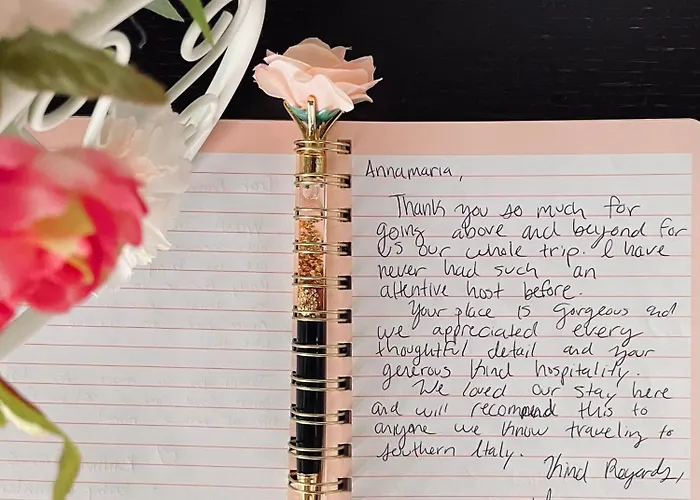 Annamaria,
Thank you so much for
going above and beyond for
us our whole trip. I have
never had such an
attentive host before.
Your place is gorgeous and
we appreciated every
thoughtful detail and your
generous kind hospitality.
We loved our stay here
and will recommend this to
anyone we know traveling to
southern Italy.
Kind Regards,